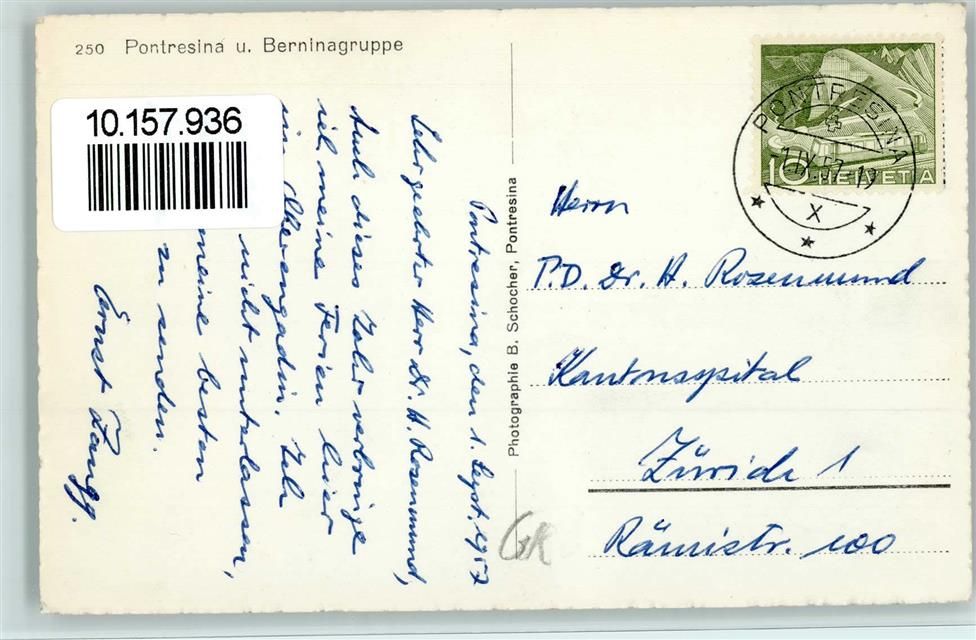 250 Pontresina u. Berninagruppe
10.157.936
Pontresina, den 1. Sept. 1957
Sehr geehrter Herr Dr. H. Rosenmund,
Auch dieses Jahr verbringe
ich meine Ferien hier
im Oberengadin. Ich
nicht unterlassen,
meine besten
zu senden.
Ernst Zangg.
Photographie B. Schocher, Pontresina
PONTRESINA
1.IX.57.-19
X
10 HELVETIA
Herrn
P.D. Dr. H. Rosenmund
Kantonsspital
Zürich 1
Rämistr. 100
GR